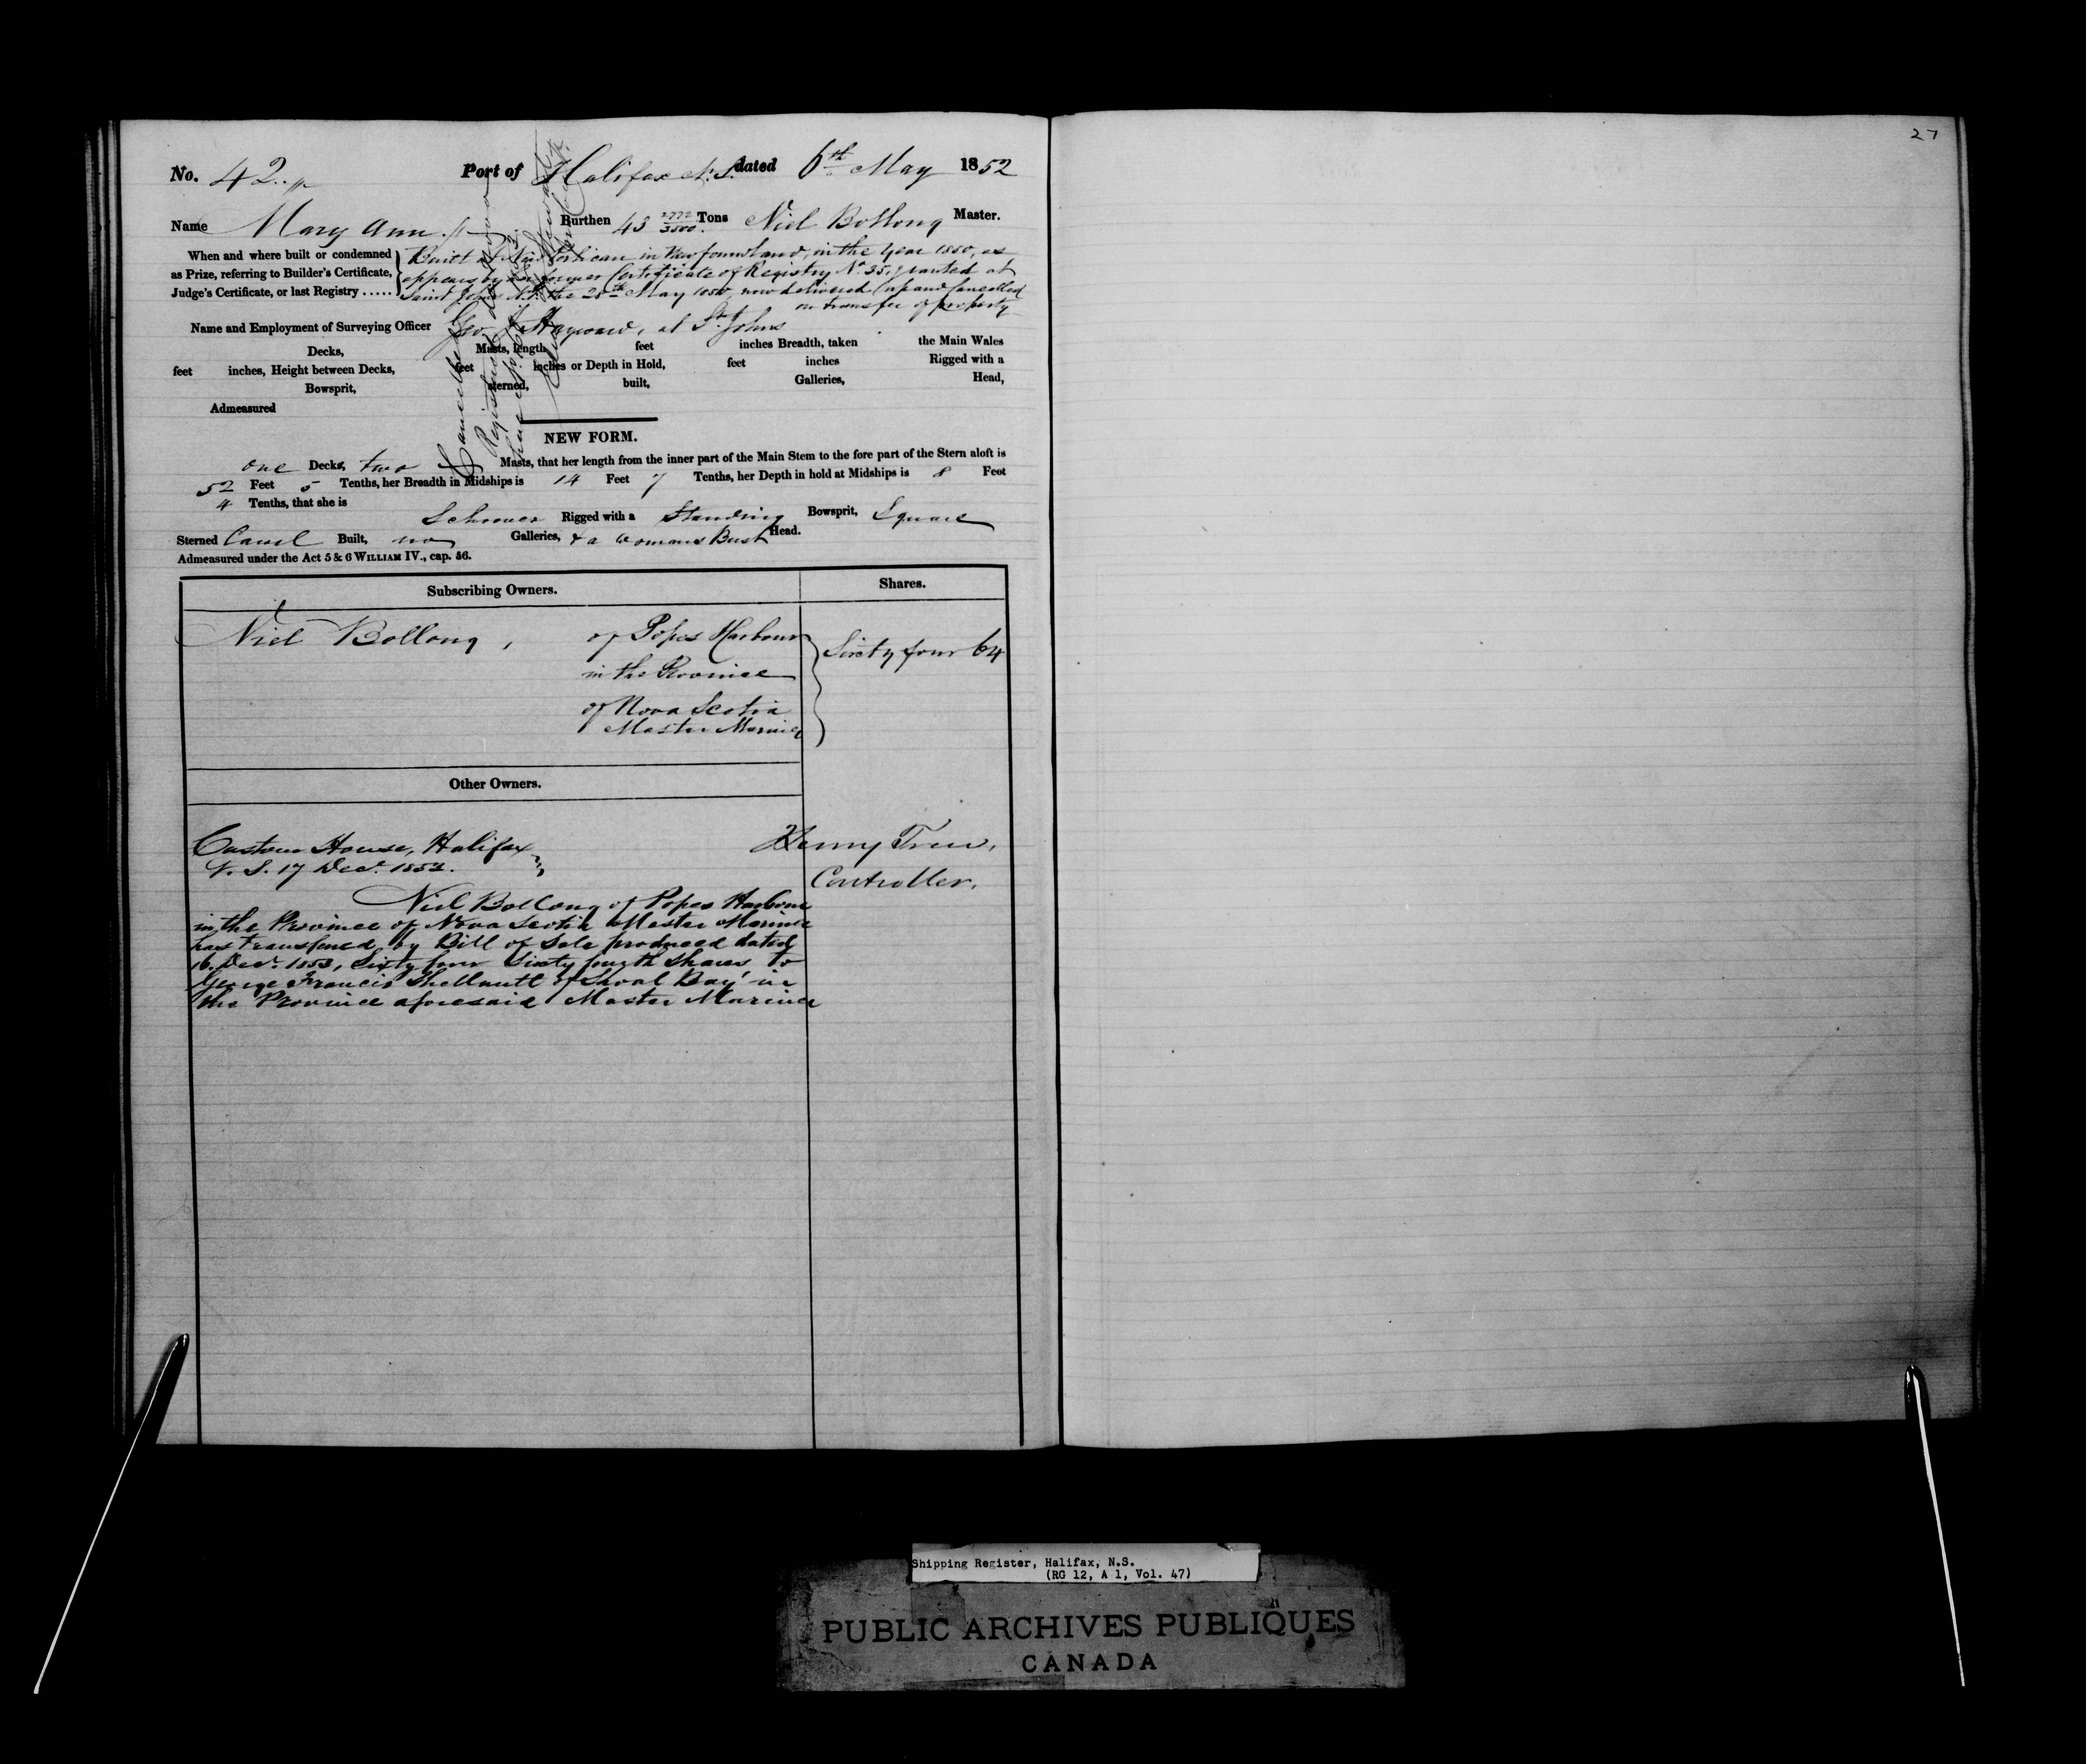 27
No. 42. Port of Halifax N.S. dated 6th May 1852
Name Mary Ann Burthen 43 2772/3500 Tons Niel Bollong Master.
When and where built or condemned as Prize, referring to Builder's Certificate, Judge's Certificate, or last Registry .....
Built at New Perlican in Newfoundland, in the Year 1850, as
appears by former Certificate of Registry No. 35, granted at
Saint Johns N.F. the 28th May 1850, now delivered up and Cancelled
on transfer of property
Name and Employment of Surveying Officer Geo. J. Hayward, at St. Johns
Decks, Masts, length feet inches Breadth, taken the Main Wales
feet inches, Height between Decks, feet inches or Depth in Hold, feet inches Rigged with a
Bowsprit, sterned, built, Galleries, Head,
Admeasured
Cancelled
Registered
NEW FORM.
one Decks, two Masts, that her length from the inner part of the Main Stem to the fore part of the Stern aloft is
52 Feet 5 Tenths, her Breadth in Midships is 14 Feet 7 Tenths, her Depth in hold at Midships is 8 Feet
4 Tenths, that she is
Schooner Rigged with a Standing Bowsprit, Square
Sterned Carvel Built, no Galleries, & a Womans Bust Head.
Admeasured under the Act 5 & 6 WILLIAM IV., cap. 56.
Subscribing Owners. Shares.
Niel Bollong, of Popes Harbour Sixty four 64
in the Province
of Nova Scotia
Master Mariner
Other Owners.
Custom House, Halifax
N.S. 17 Decr. 1853.
Henry Trew,
Controller.
Niel Bollong of Popes Harbour
in the Province of Nova Scotia Master Mariner
has transfered by Bill of Sale produced dated
16 Decr. 1853, Sixty four Sixty fourth Shares to
George Francis Shellnutt of Shoal Bay in
the Province aforesaid Master Mariner
Shipping Register, Halifax, N.S.
(RG 12, A 1, Vol. 47)
PUBLIC ARCHIVES PUBLIQUES
CANADA